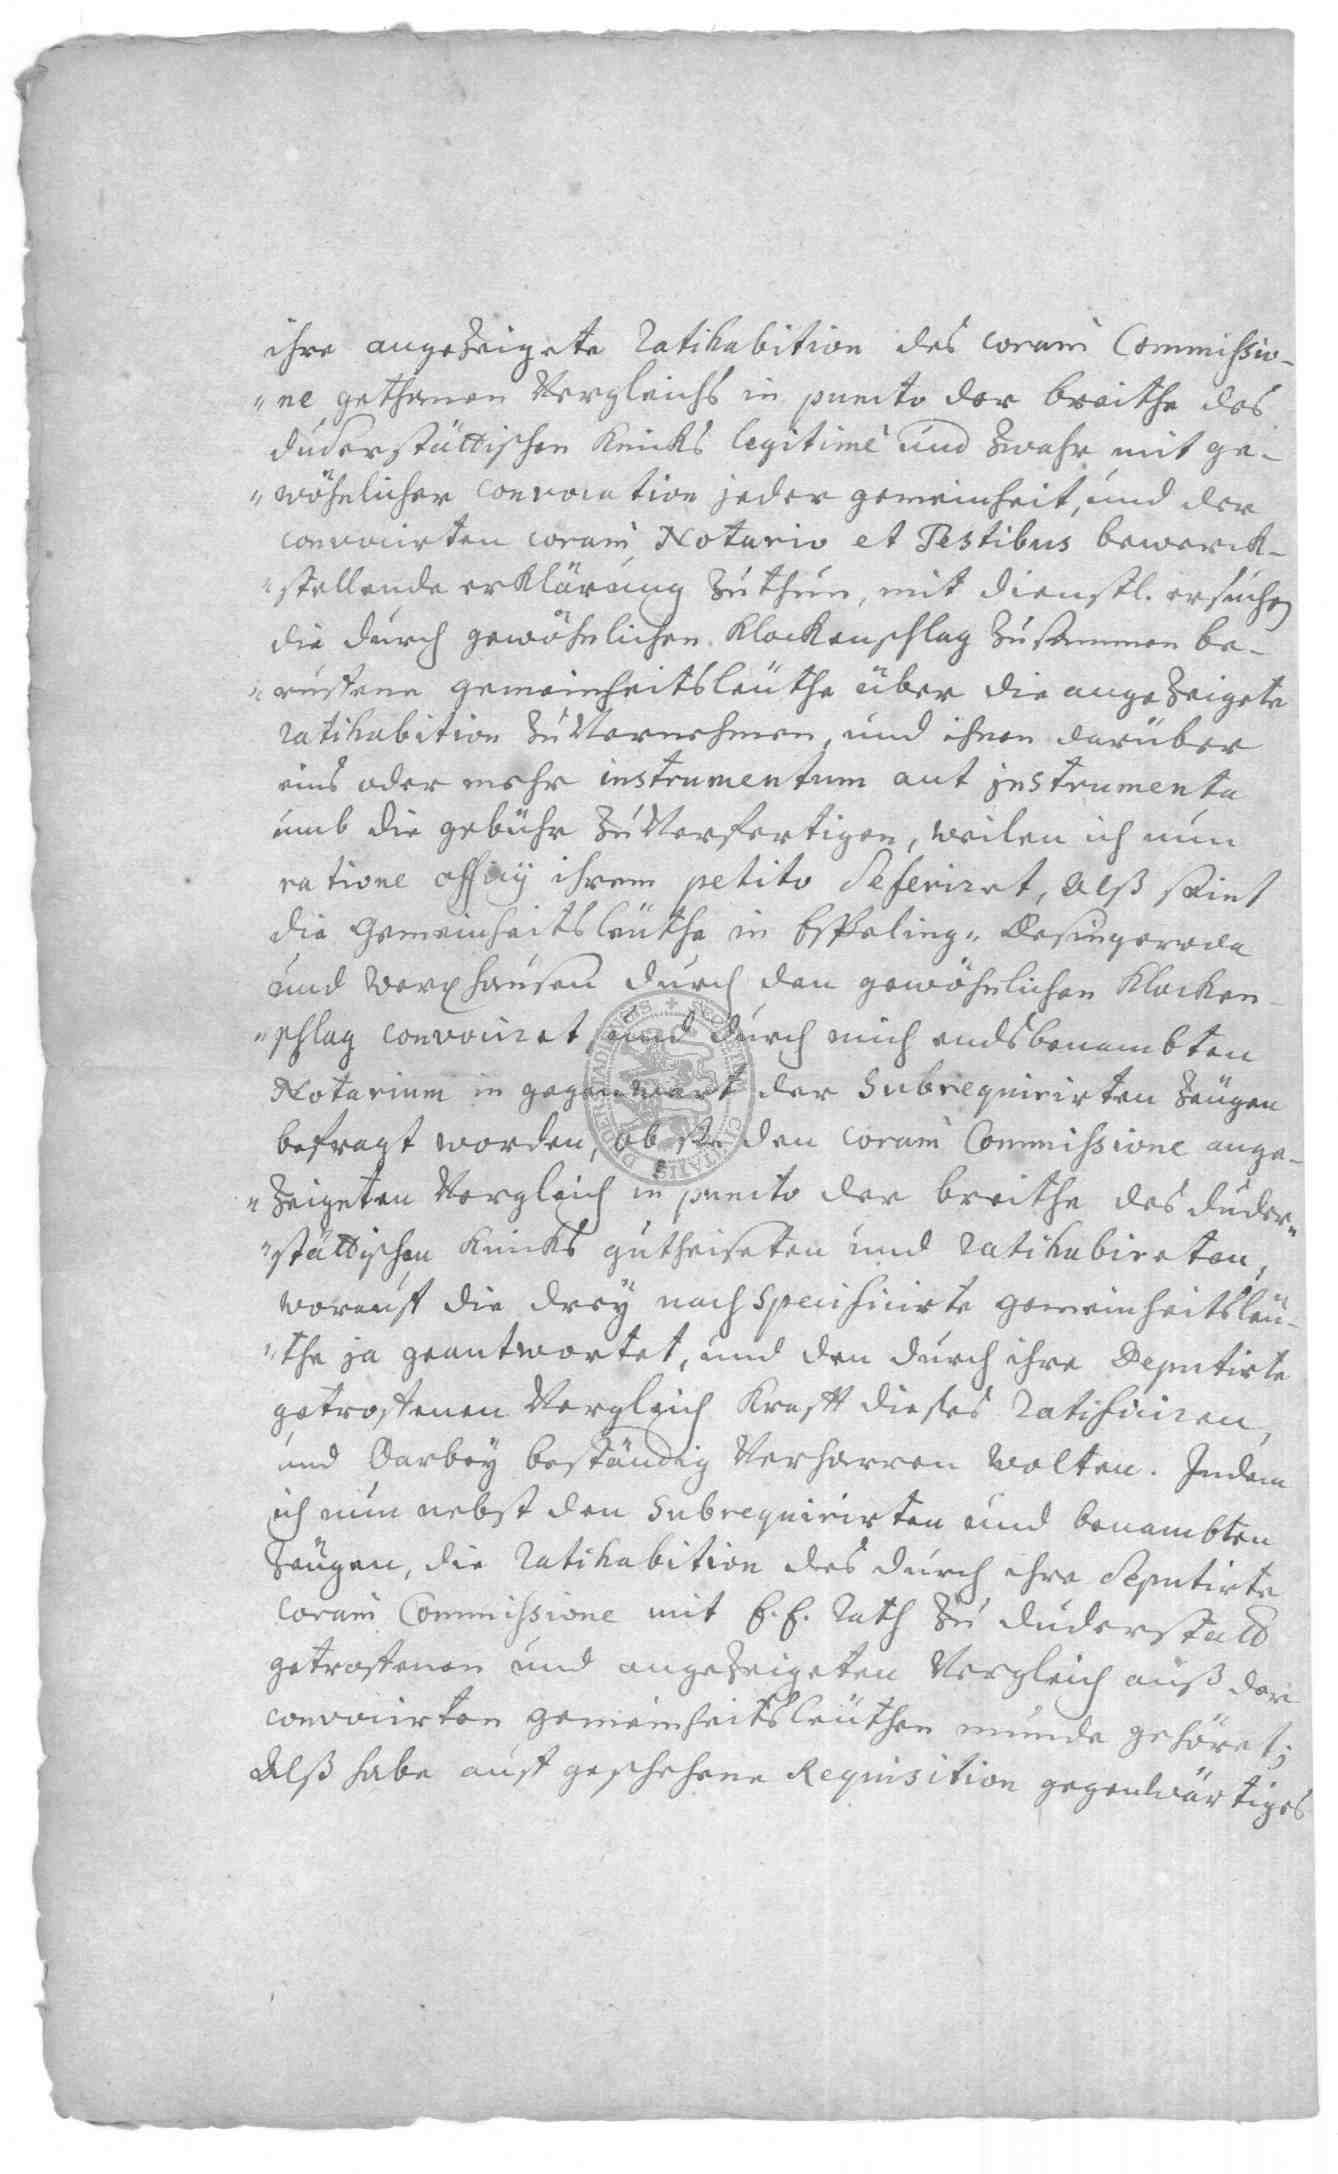 ihre angezeigete Ratihabition des coram Commissio-
"ne gethanen Vergleichs in puncto der breithe des
duderstättischen Knicks legitimè und zwahr mit ge-
"wöhnlicher convocation jeder gemeinheit, und der
convocirten coram Notario et Testibus bewerck-
"stellende erklärung zu thun, mit dienstl. ersuchen
die durch gewöhnlichen Klockenschlag zusammen be-
"ruffene gemeinheitsleüthe über die angezeigete
ratihabition zu Vernehmen, und ihnen darüber
eins oder mehr instrumentum aut instrumenta
umb die gebühr zu Verfertigen, weilen ich nun
ratione officij ihrem petito deferiret, Alß seint
die Gemeinheitsleüthe in Esseling" Desingeroda
und Werxhausen durch den gewöhnlichen Klocken-
"schlag convociret, und durch mich endsbenambten
Notarium in gegenwart der subrequirirten Zeügen
befragt worden, ob sie den coram Commissione ange-
"zeigeten Vergleich in puncto der breithe des duder"
"stättischen Knicks gutheiseten und ratihabireten,
worauff die drey nach specificirte gemeinheitsleü-
"the ja geantwortet, und den durch ihre Deputirte
getroffenen Vergleich Krafft dieses ratificiren,
und Darbey beständig Verharren wolten. Indem
ich nun nebst den subrequirirten und benambten
Zeügen, die ratihabition des durch ihre deputirte
coram Commissione mit E. E. Rath zu duderstadt
getroffenen und angezeigeten Vergleich auß der
convocirten gemeinheitsleüthen munde gehöret;
Alß habe auff geschehene Requisition gegenwärtiges
SIGILLUM CIVITATIS DUDERSTADIENSIS